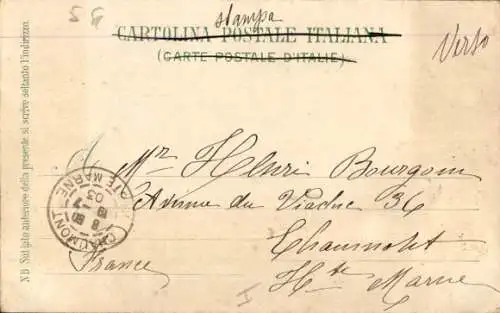 5 G
stampa
CARTOLINA POSTALE ITALIANA
(CARTE POSTALE D'ITALIE)
Verso
NB Sul lato anteriore della presente si scrive soltanto l'indirizzo.
Mr Henri Bourgoin
Avenue du Viaduc 36
Chaumont
Hte Marne
France
CHAUMONT
HTE MARNE
8 30
19 - 7
03
I